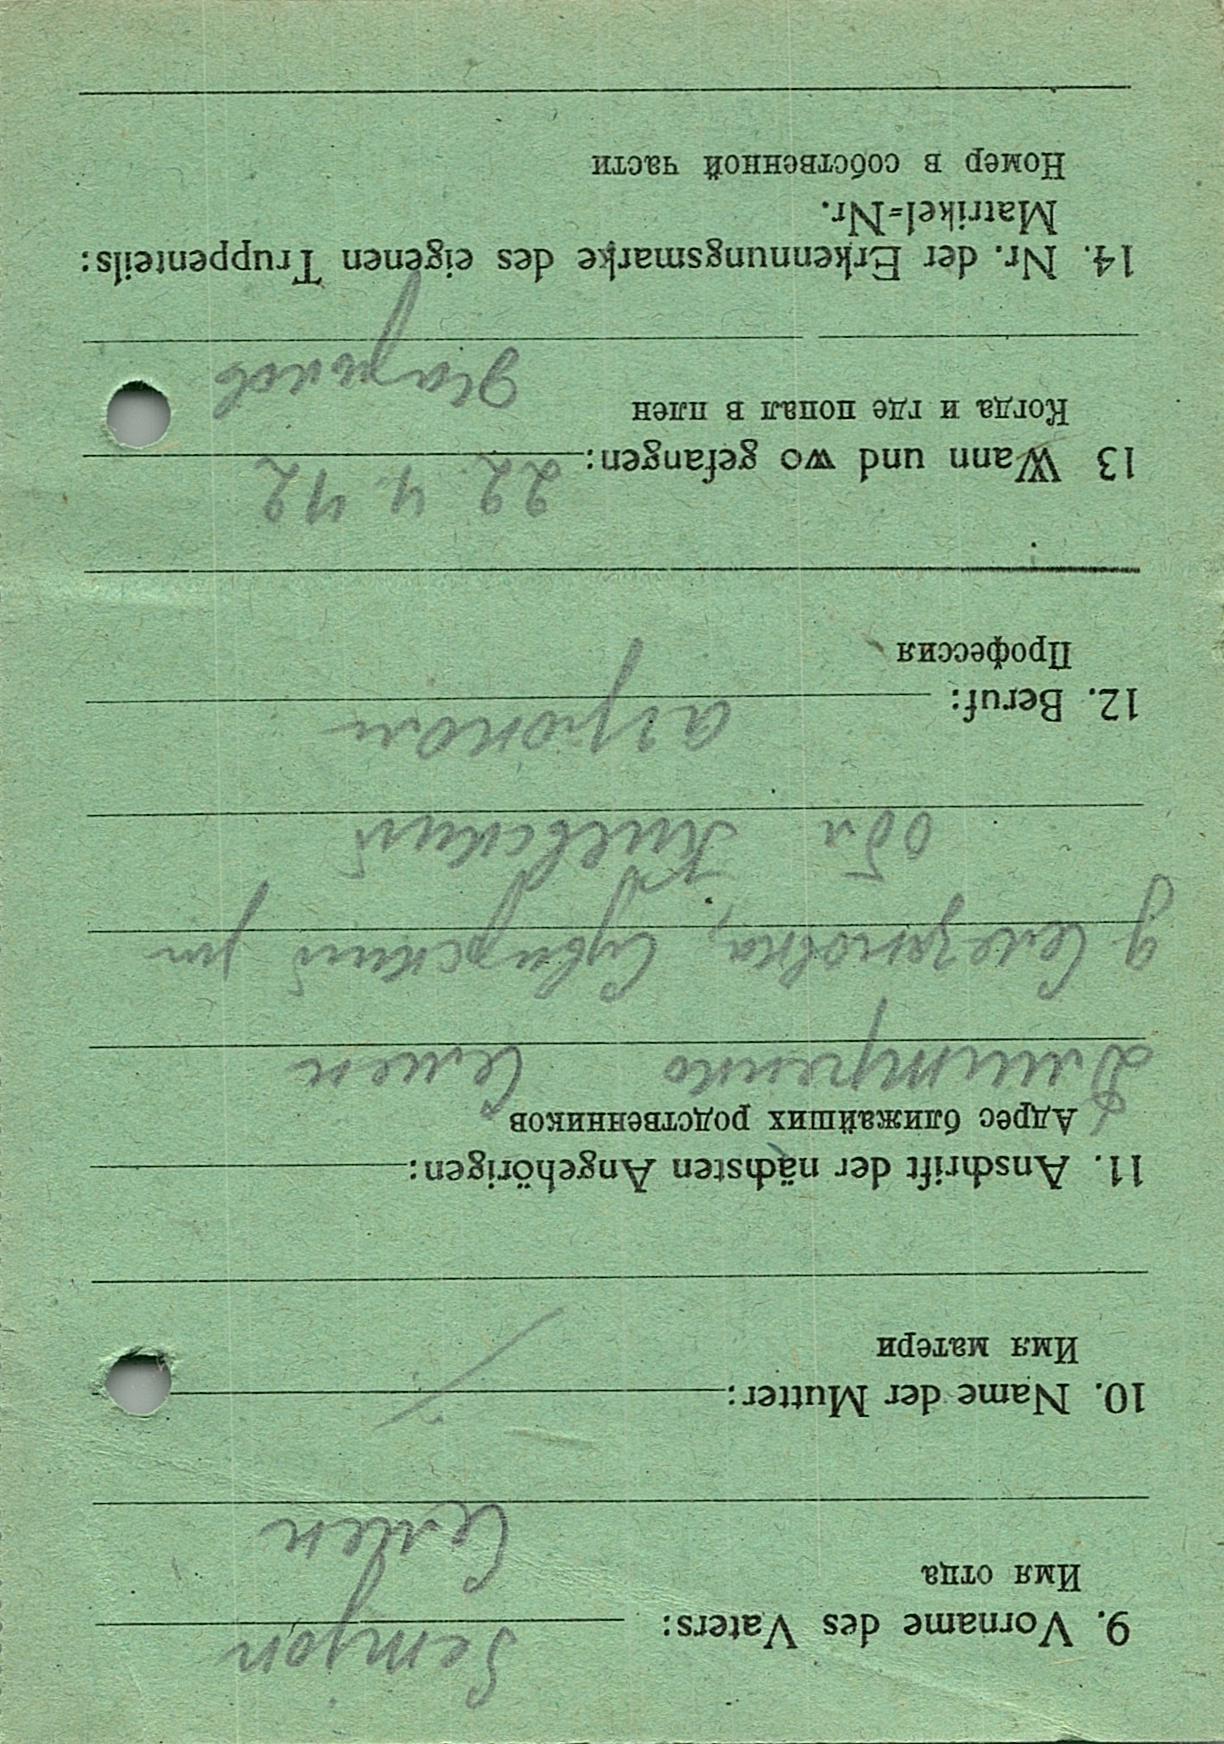 9. Vorname des Vaters: Semjon
Имя отца
Семен
10. Name der Mutter:
Имя матери
11. Anschrift der nächsten Angehörigen:
Адрес ближайших родственников
Дмитренко Семен
д
обл Киевский
12. Beruf: агроном
Профессия
13 Wann und wo gefangen: 22. 4. 42
Когда и где попал в плен
Харков
14. Nr. der Erkennungsmarke des eigenen Truppenteils:
Matrikel-Nr.
Номер в собственной части